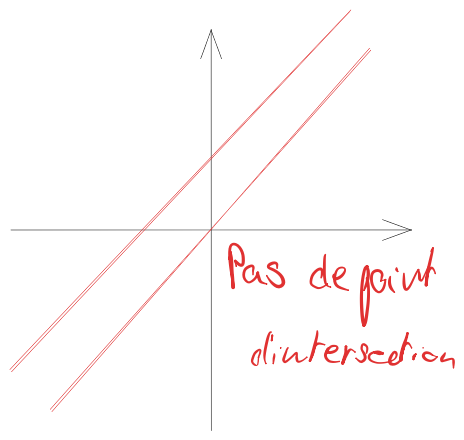 Pas de point
d'intersection